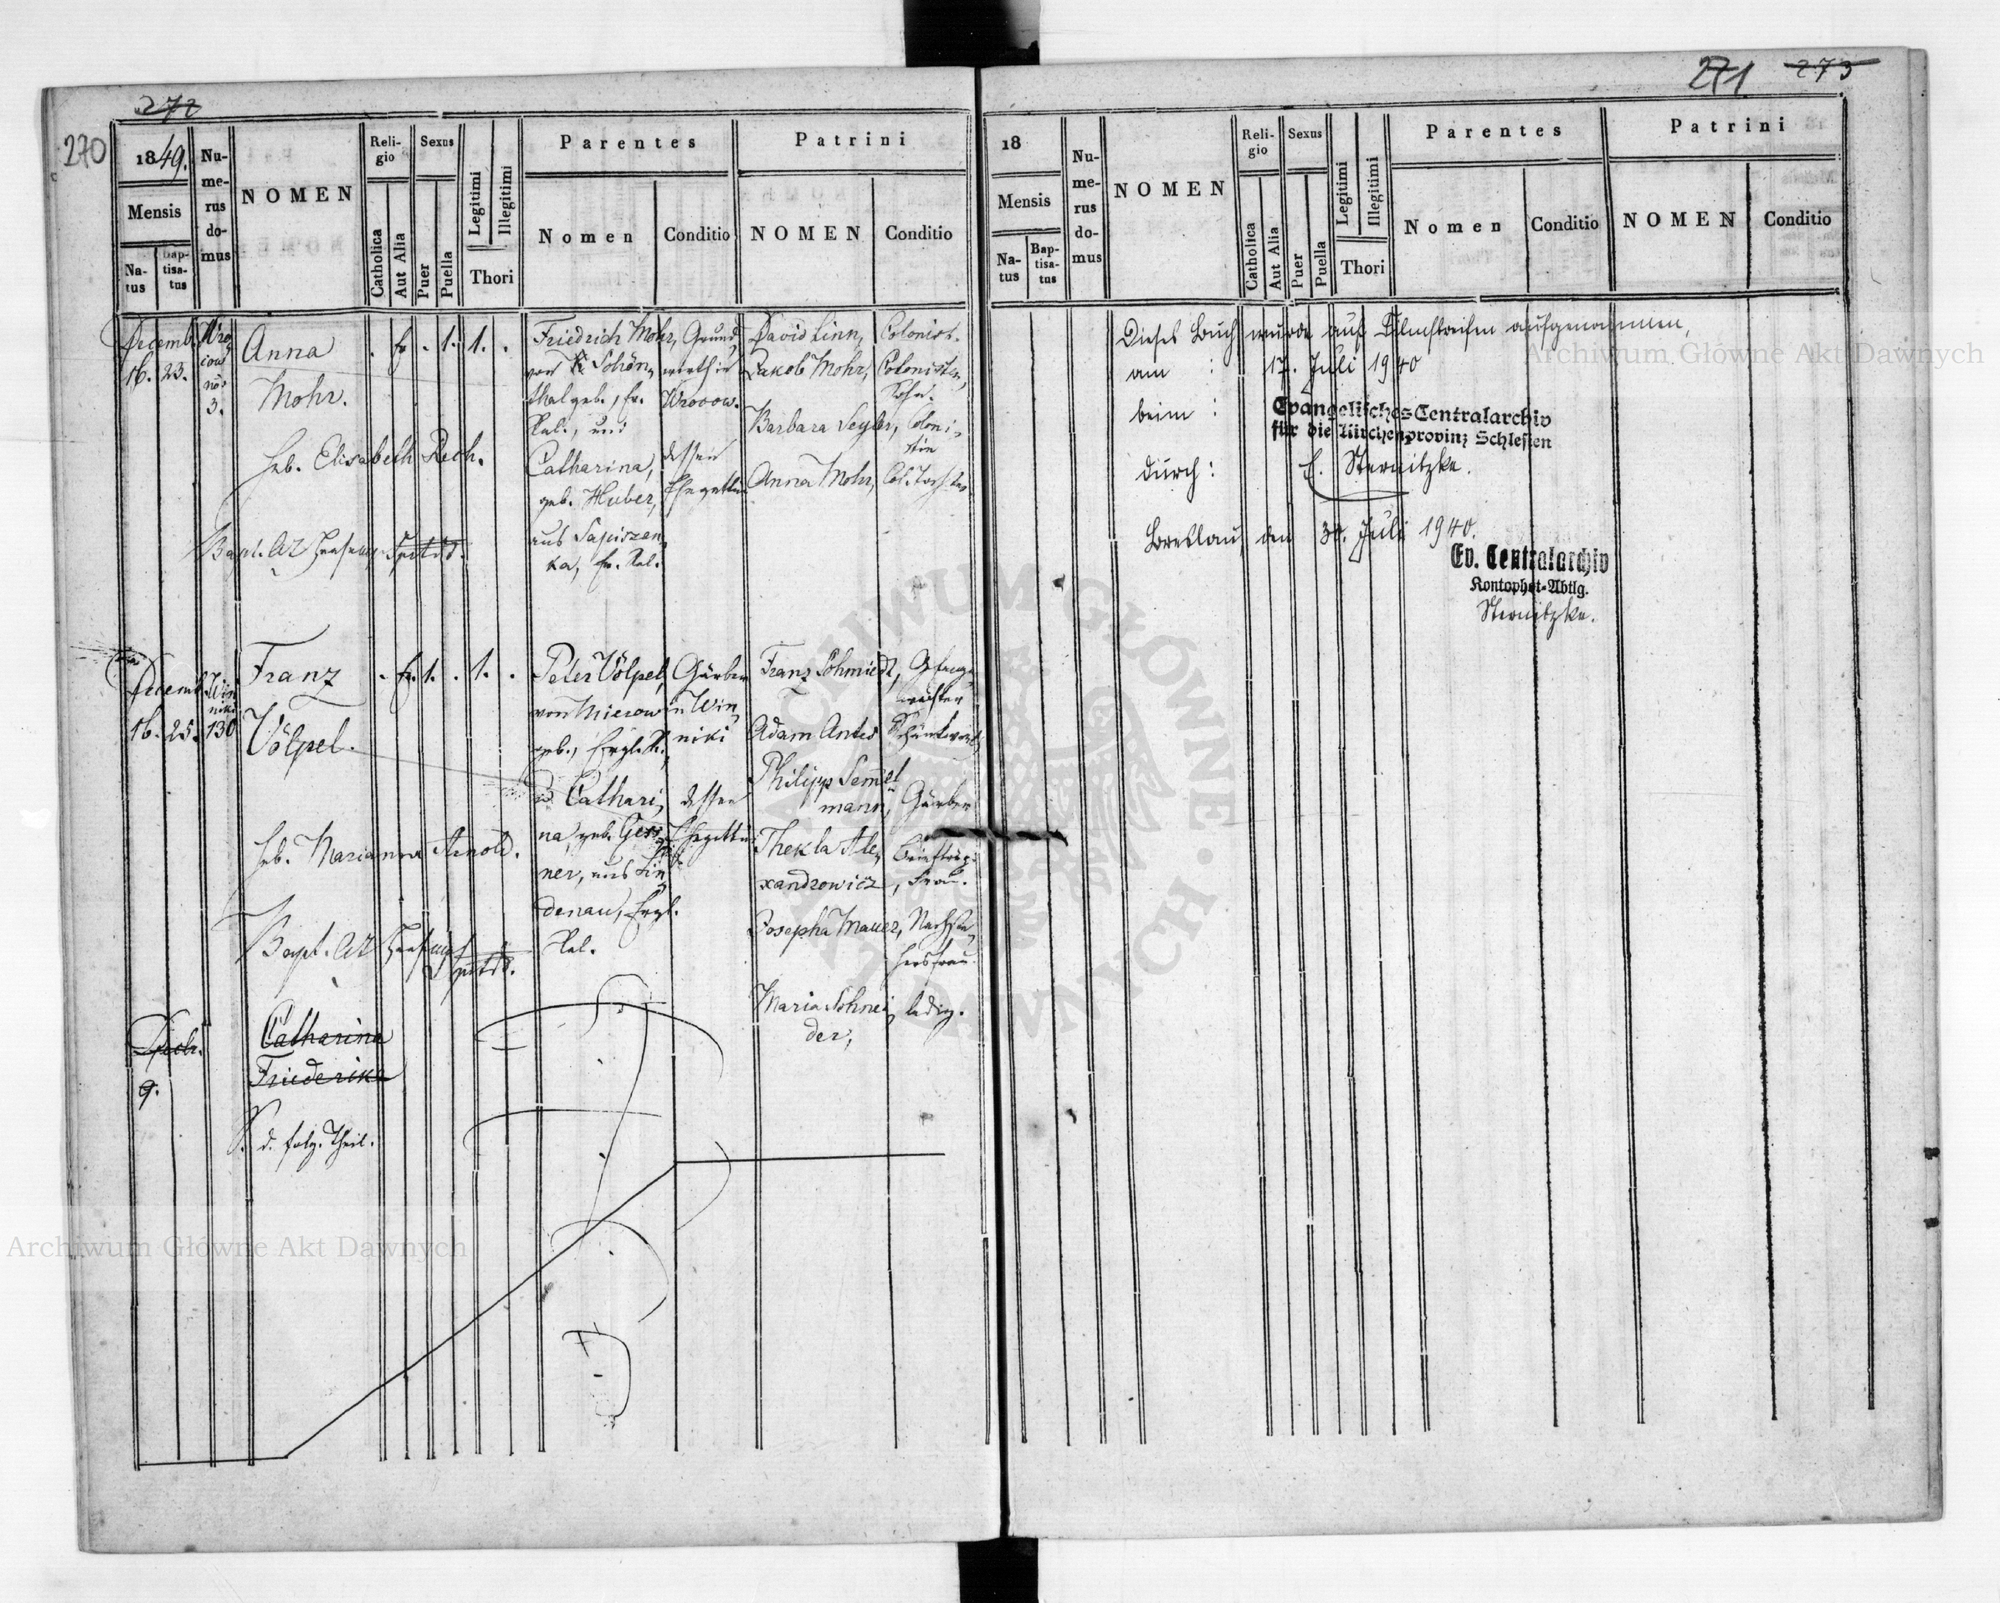 272
270
1849.
Mensis
Na-
tus
Bap-
tisa-
tus
Nu-
me-
rus
do-
mus
NOMEN
Reli-
gio
Catholica
Aut Alia
Sexus
Puer
Puella
Legitimi
Illegitimi
Thori
Parentes
Nomen
Conditio
Patrini
NOMEN
Conditio
Decemb.
16. 23.
3.
Anna
Mohr.
Heb. Elisabeth Rech.
1. 1.
Friedrich Mohr,
von Schön-
thal geb., ev.
Ral., und
Catharina,
geb. Huber,
aus Sapiszan-
ka, ev. Ral.
Grund-
wirth in
Wroow.
dessen
Ehegattin
David Linn, Colonist.
Jakob Mohr, Colonisten-
Sohn.
Barbara Seyler, Coloni-
stin
Anna Mohr, Col. Tochter
Decemb.
16. 25.
Win
niki
130
Franz
Völpel.
Heb. Marianna Arnold.
1. 1.
Peter Völpel,
von Mierow
geb.,
u. Cathari-
na, geb. Gess-
ner, aus Lin-
denau, Evgl.
Ral.
Gärber
in Win-
niki
dessen
Ehegattin
Franz Schmiedt,
Adam Antes
Philipp Semmel
mann, Gärber
Thekla Ale-
xandrowicz, Frau.
Josepha Mauer,
Maria Schnei- ledig.
der,
Decbr.
9.
Catharina
Friederika
S. d. folg. Theil.
271 273
18
Mensis
Na-
tus
Bap-
tisa-
tus
Nu-
me-
rus
do-
mus
NOMEN
Reli-
gio
Catholica
Aut Alia
Sexus
Puer
Puella
Legitimi
Illegitimi
Thori
Parentes
Nomen
Conditio
Patrini
NOMEN
Conditio
Dieses Buch wurde auf Filmstreifen aufgenommen,
am : 17. Juli 1940
beim : Evangelisches Centralarchiv
für die Kirchenprovinz Schlesien
durch : E. Sternitzke.
Breslau, den 30. Juli 1940.
Ev. Centralarchiv
Kontophot-Abtlg.
Sternitzke.
Archiwum Główne Akt Dawnych
Archiwum Główne Akt Dawnych
ARCHIWUM GŁÓWNE AKT DAWNYCH